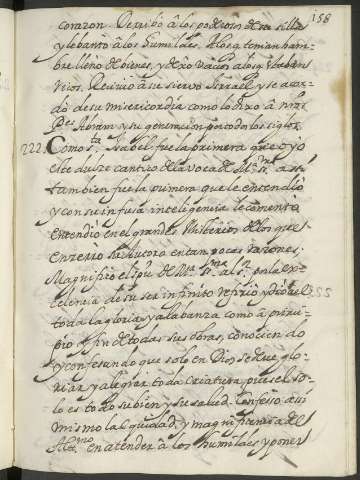 158
corazon. Derribó á los poderosos de su silla
y lebantó á los humildes. A los q̃ tenian ham=
bre llenó de vienes, y dexó vacios a los q̃ estaban
ricos. Recivió a su siervo Israel y se acor=
dó de su misericordia como lo dixo á nros
P.es Abram y su generacion por todos los siglos.
222. Como S.ta Isabel fue la primera que oyó
este dulce cantico de la voca de M.ª SS.ma assi
tambien fue la primera que le entendió
y con su infusa inteligencia le comentó
entendió en el grandes Misterios de los que
encerró su Autora en tan pocas razones.
Magnificó el spu. de M.ª SS.ma al S.r por la ex=
celencia de su ser infinito refirió y dió a el
toda la gloria y alabanza como á princi=
pio y fin de todas sus obras, conociendo
y confesando que solo en Dios se deve glo=
riar y alegrar toda criatura pues el so=
lo es todo su bien y su salud. Confesó assi
mismo la equidad, y magnificencia del
Altis.mo en atender á los humildes y poner